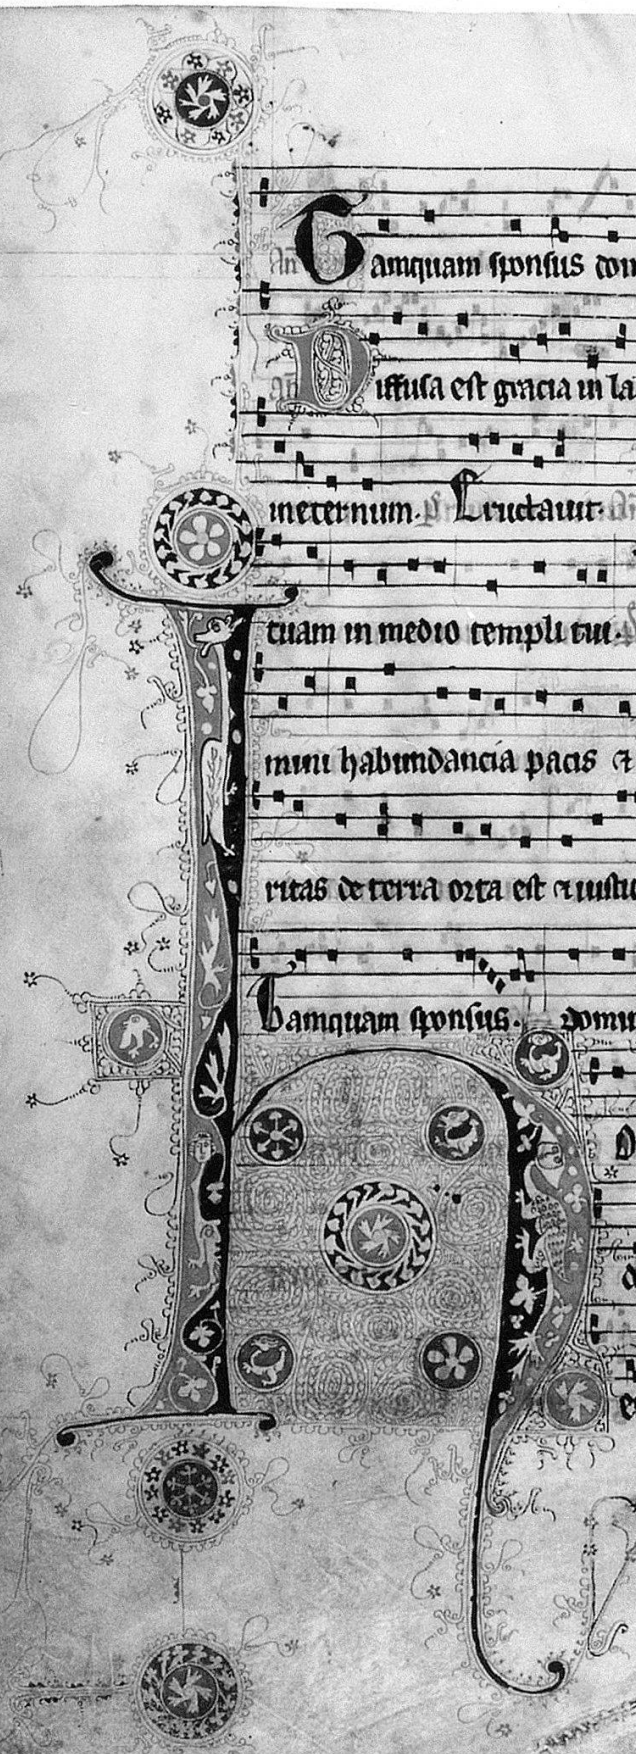 An̄ Tamquam sponsus dom
an̄ Diffusa est gracia in la
ineternum. p̄ Eructauit.
tuam in medio templi tui.
mini habundancia pacis ⁊
ritas de terra orta est ⁊ iustu
Tamquam sponsus. domu
H